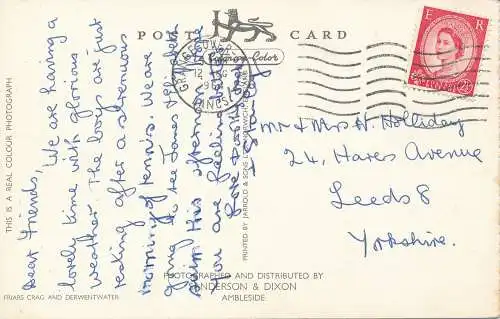 POST CARD
Natural Color
GRANGE-OVER-
12
AUG
E R
2½D
THIS IS A REAL COLOUR PHOTOGRAPH
Dear Friends, We are having a
lovely time with glorious
weather. The boys are just
resting after a strenuous
morning of tennis. We are
going to see James Hilliaben
swim this afternoon. Hope
you are feeling well.
Love to all
Mr & Mrs H. Holliday
24, Hares Avenue
Leeds 8
Yorkshire.
PRINTED BY JARROLD & SONS LTD. NORWICH ENGLAND
PHOTOGRAPHED AND DISTRIBUTED BY
SANDERSON & DIXON
AMBLESIDE
FRIARS CRAG AND DERWENTWATER